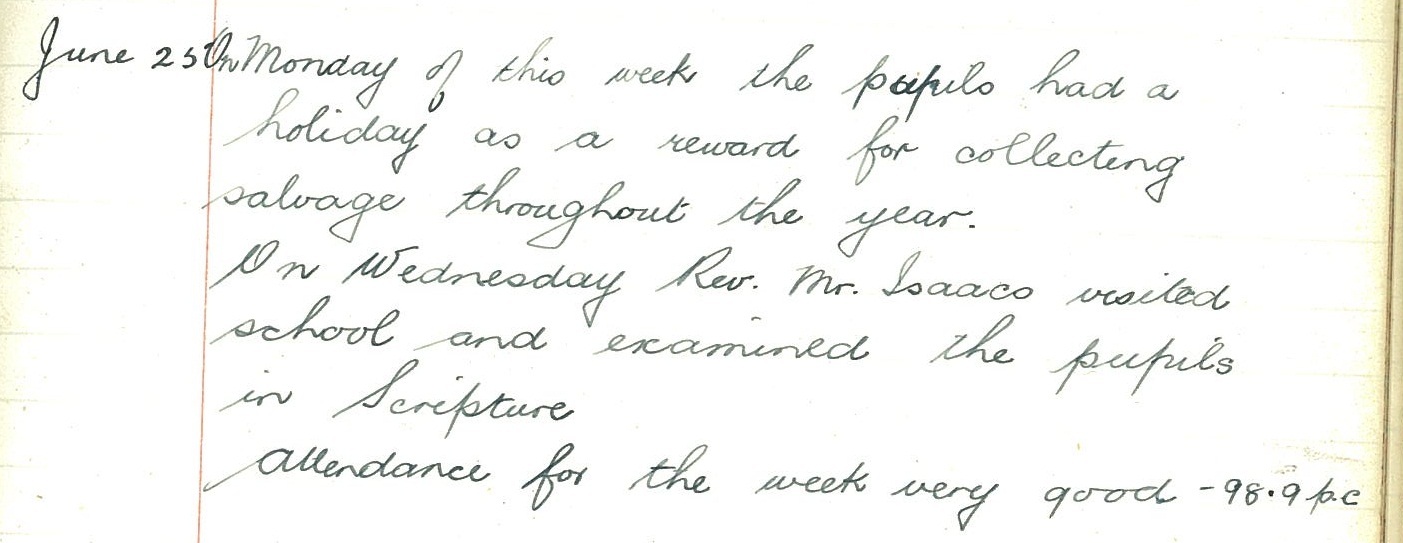 June 25 On Monday of this week the pupils had a
holiday as a reward for collecting
salvage throughout the year.
On Wednesday Rev. Mr. Isaacs visited
school and examined the pupils
in Scripture
Attendance for the week very good - 98.9 p.c